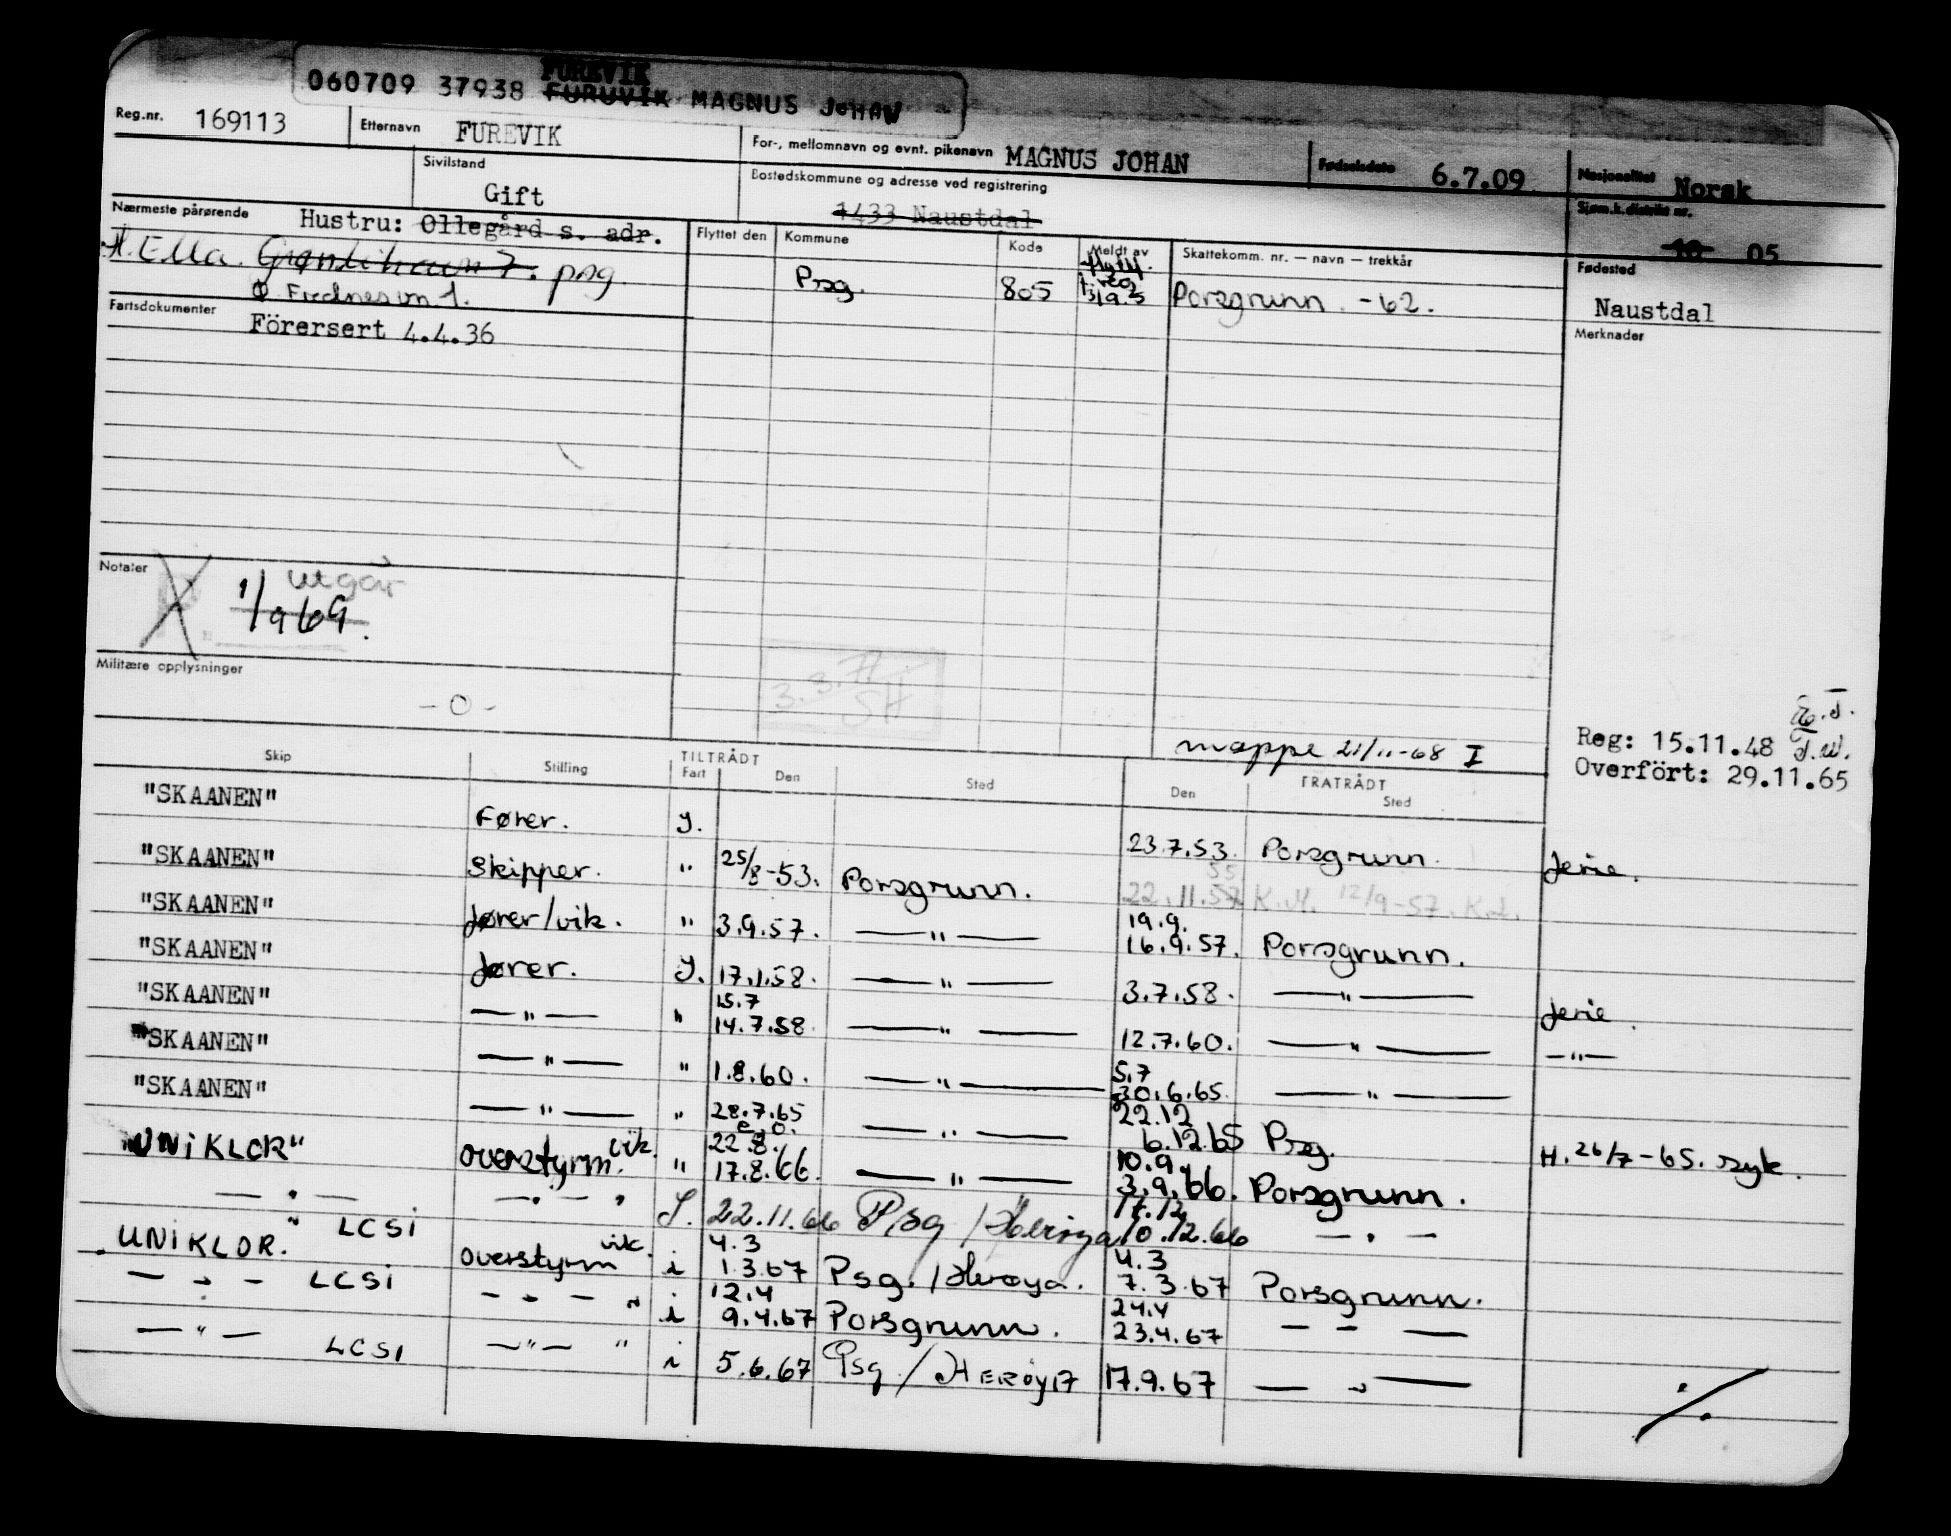 FUREVIK
060709 37938 FURUVIK MAGNUS JOHAN
Reg.nr. 169113 Etternavn FUREVIK For-, mellomnavn og evnt. pikenavn MAGNUS JOHAN Fødselsdato 6.7.09 Nasjonalitet Norsk
Sivilstand Gift Bostedskommune og adresse ved registrering 1433 Naustdal Sjøm.k.distrikt nr. 10 05
Nærmeste pårørende Hustru: Ollegård s. adr. Flyttet den Kommune Kode Meldt av Skattekomm. nr. — navn — trekkår Fødested
H. Ella. psg. Psg. 805 Porsgrunn. -62. Naustdal
Ø. Frednesvn 1.
Fartsdokumenter Förersert 4.4.36 Merknader
Notater utgår
1/9 69.
Militære opplysninger
- 0 -
3.3.71
SH
mappe 21/11-68 I
Reg: 15.11.48 T.W.
Overfört: 29.11.65
Skip Stilling TILTRÅDT Fart Den Sted FRATRÅDT Den Sted
"SKAANEN" Fører. I. 23.7.53. Porsgrunn. ferie.
"SKAANEN" Skipper. " 25/8-53. Porsgrunn. 55 22.11.57 K.M. 12/9-57. K.L.
"SKAANEN" fører/vik. " 3.9.57. —"— 19.9. 16.9.57. Porsgrunn.
"SKAANEN" fører. I. 17.1.58. —"— 3.7.58. —"— ferie.
"SKAANEN" —"— " 15.7 14.7.58. —"— 12.7.60. —"— —"—
"SKAANEN" —"— " 1.8.60. —"— 5.7 30.6.65. —"—
"SKAANEN" —"— " 28.7.65 e.o. —"— 22.12 6.12.65 Psg. H. 26/7-65. syk.
"UNIKLOR" overstyrm. vik. " 22.8. 17.8.66. —"— 10.9. 3.9.66. Porsgrunn.
—"— —"— " I. 22.11.66 Psg/Herøya 17.12 10.12.66 —"—
UNIKLOR." LCSI overstyrm vik. i 4.3 1.3.67 Psg./Herøya. 4.3 7.3.67 Porsgrunn.
—"— LCSI —"— " i 12.4 9.4.67 Porsgrunn. 24.4 23.4.67 — — —
—"— LCSI —"— " i 5.6.67 Psg/HERØYA 17.9.67 —"—
./.